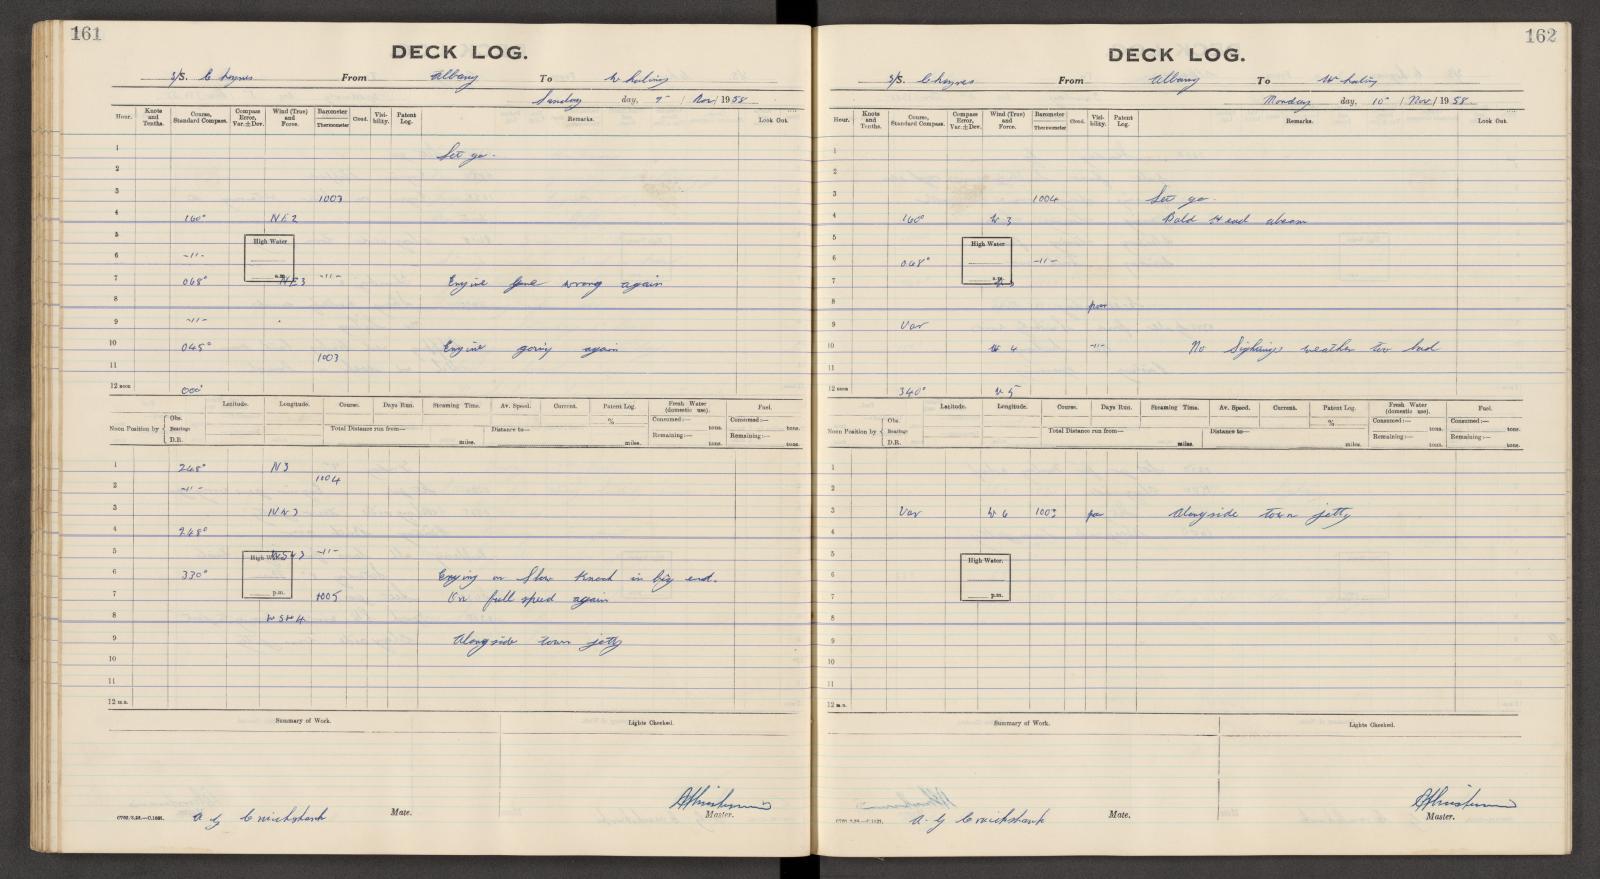 161
DECK LOG.
S/S. Cheynes From Albany To Whaling
Sunday day, 9 / Nov / 1958
Hour. Knots and Tenths. Course, Standard Compass. Compass Error, Var. ± Dev. Wind (True) and Force. Barometer Thermometer Cloud. Visibility. Patent Log. Remarks. Look Out.
1 Set go.
2
3 1003
4 160° NE 2
5 High Water
6 -11-
7 068° NE 3 -11- Engine gone wrong again
a.m.
8
9 -11-
10 045° Engine going again
11 1003
12 noon 000°
Latitude. Longitude. Course. Days Run. Steaming Time. Av. Speed. Current. Patent Log. Fresh Water (domestic use). Fuel.
Noon Position by Obs. Bearings D.R. % Consumed:— tons. Consumed:— tons.
Total Distance run from— miles. Distance to— miles. Remaining:— tons. Remaining:— tons.
1 248° N 3
2 -11- 1004
3 NW 3
4 248°
5 High Water WSW 3 -11-
6 330° Going on Slow Knock in big end.
7 p.m. 1005 On full speed again
8 WSW 4
9 Alongside town jetty
10
11
12 m.n.
Summary of Work. Lights Checked.
A. G Cruickshank Mate. Master.
162
DECK LOG.
S/S. Cheynes From Albany To Whaling
Monday day, 10 / Nov / 1958
Hour. Knots and Tenths. Course, Standard Compass. Compass Error, Var. ± Dev. Wind (True) and Force. Barometer Thermometer Cloud. Visibility. Patent Log. Remarks. Look Out.
1
2
3 1004 Set go.
4 160° W 3 Bald Head abeam
5 High Water
6 068° -11-
7 a.m.
8 poor
9 Var
10 W 4 -11- No Sightings weather too bad
11
12 noon 340° W 5
Latitude. Longitude. Course. Days Run. Steaming Time. Av. Speed. Current. Patent Log. Fresh Water (domestic use). Fuel.
Noon Position by Obs. Bearings D.R. % Consumed:— tons. Consumed:— tons.
Total Distance run from— miles. Distance to— miles. Remaining:— tons. Remaining:— tons.
1
2
3 Var W 6 1003 poor Alongside town jetty
4
5 High Water.
6
7 p.m.
8
9
10
11
12 m.n.
Summary of Work. Lights Checked.
A. G Cruickshank Mate. Master.